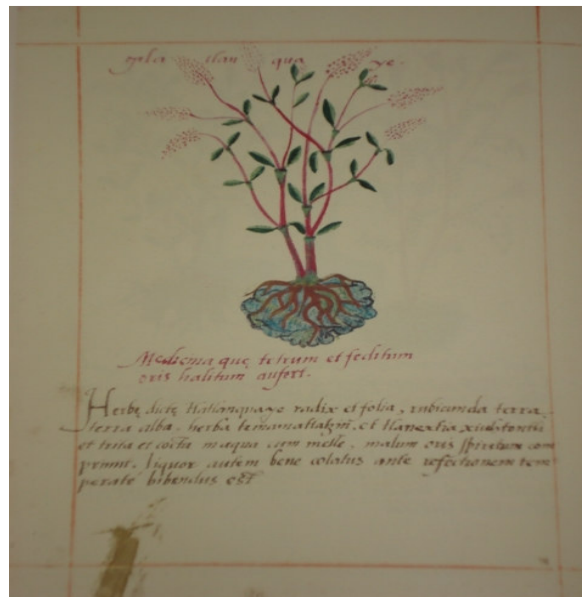 tlatlan qua ye.
Medicina quę tetrum et feditum
oris halitum aufert.
Herbę dictę tlatlanquaye radix et folia, rubicunda terra,
terra alba, herba temamatlatzin, et tlanextia xiuhtontli
et trita et cocta in aqua cum melle, malum oris spiritum com
primit. liquor autem bene colatus ante refectionem tem
peratè bibendus est